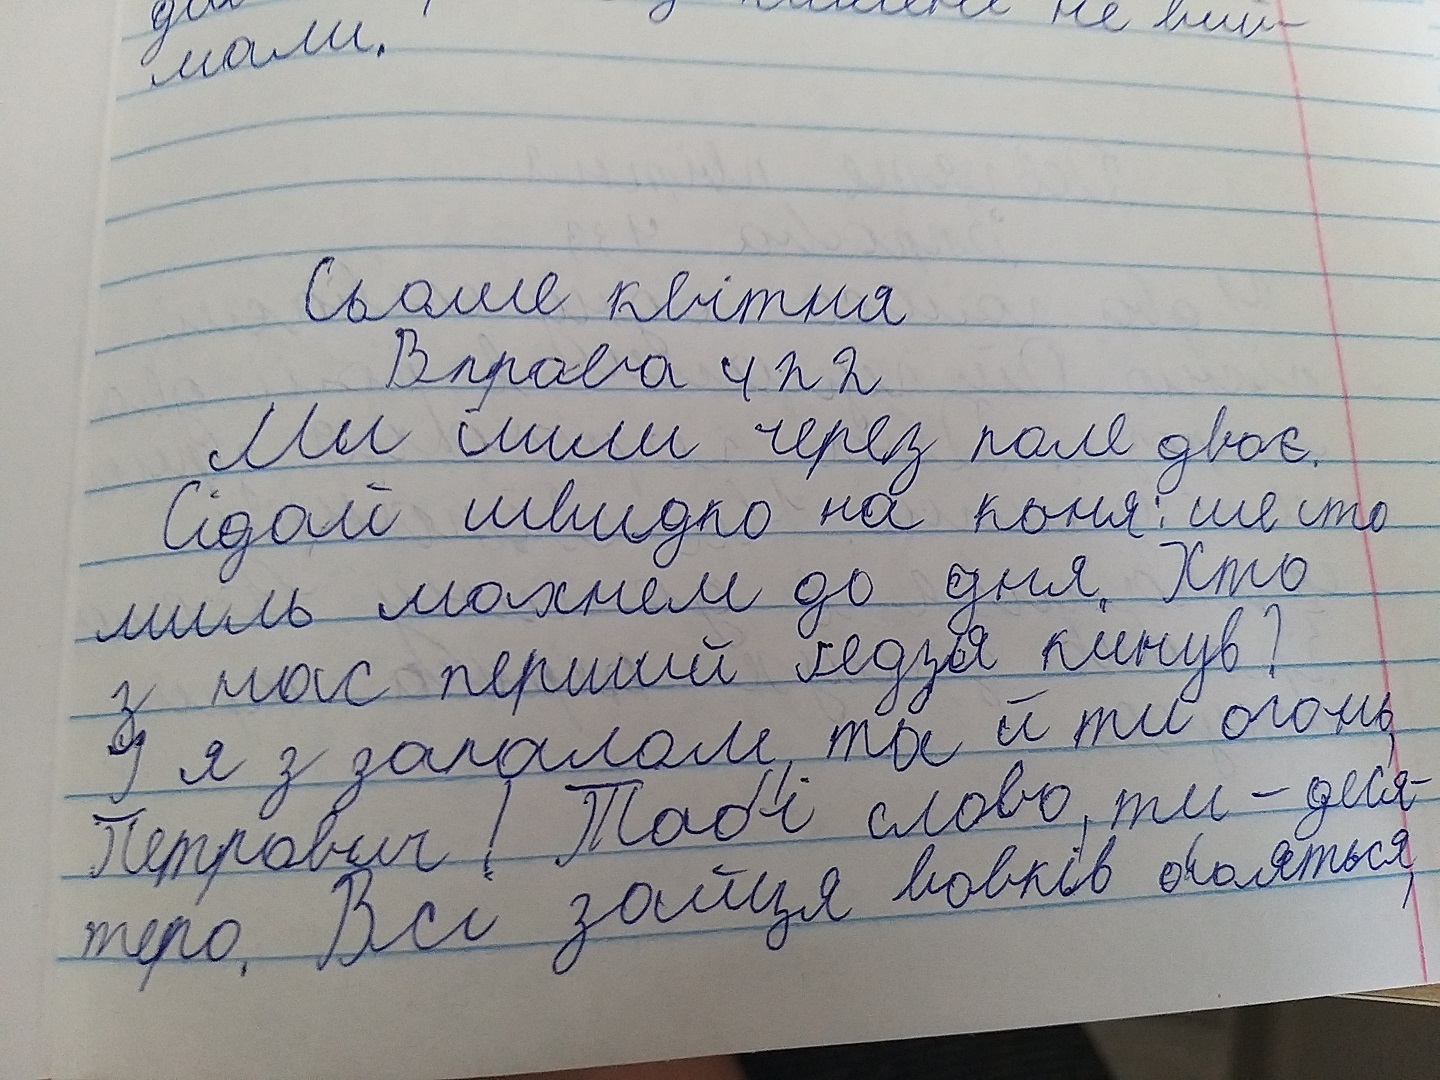 не вий-
мали.
Сьоме квітня
Вправа 422
Ми їхали через поле двоє.
Сідай швидко на коня: ще сто
миль махнем до дня. Хто
з нас перший ґедзя кинув?
І я з запалом, та й ти огонь,
Петрович! Тобі слово, ти - деся-
теро. Всі зайця вовків бояться,